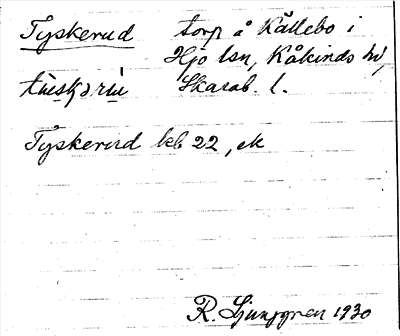 Tyskerud torp å Källebo i
Hjo lsn, Kåkinds hd,
Skarab. l.
Tyskerud kb 22, ek
R. Ljunggren 1930